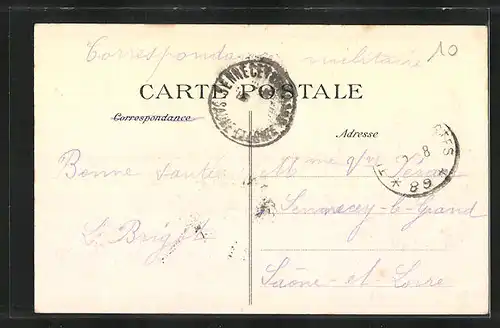 Correspondance militaire
10
CARTE POSTALE
SENNECEY
SAONE-ET-LOIRE
Correspondance
Adresse
Bonne santé
Mme Vve
Sennecey-le-Grand
Saône-et-Loire
8
* 89 *